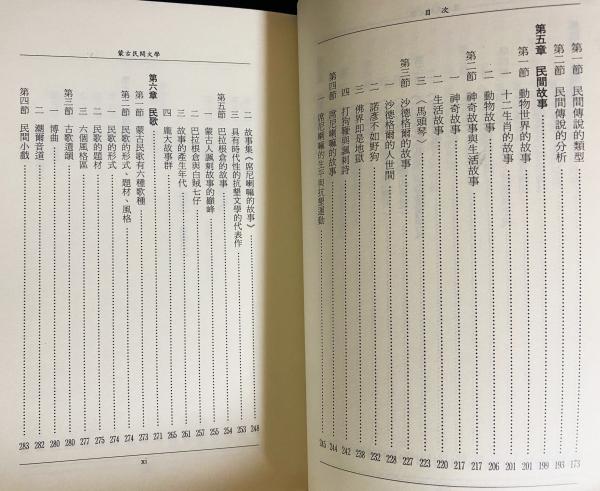 目次
第一節 民間傳說的類型……173
第二節 民間傳說的分析……193
第五章 民間故事……199
第一節 動物世界的故事……201
一 十二生肖的故事……201
二 動物故事……206
第二節 神奇故事與生活故事……217
一 神奇故事……217
二 生活故事……220
三 〈馬頭琴〉……223
第三節 沙德格爾的故事……227
一 沙德格爾的人世間……228
二 諾彥不如野狗……232
三 佛界即是地獄……238
四 打狗鞭與諷刺詩……242
第四節 席尼喇嘛的故事……244
一 席尼喇嘛的生平與抗墾運動……245
蒙古民間文學
二 故事集《席尼喇嘛的故事》……248
三 具有時代性的抗墾文學的代表作……253
第五節 巴拉根倉的故事……254
一 蒙古人諷刺故事的巔峰……255
二 巴拉根倉與白賊七仔……257
三 故事的產生年代……261
四 龐大故事群……265
第六章 民歌……271
第一節 蒙古民歌有六種歌種……273
第二節 民歌的形式、題材、風格……274
一 民歌的形式……274
二 民歌的題材……275
三 六個風格區……277
第三節 古歌遺韻……280
一 博曲……280
二 潮爾音道……282
第四節 民間小戲……283
XI